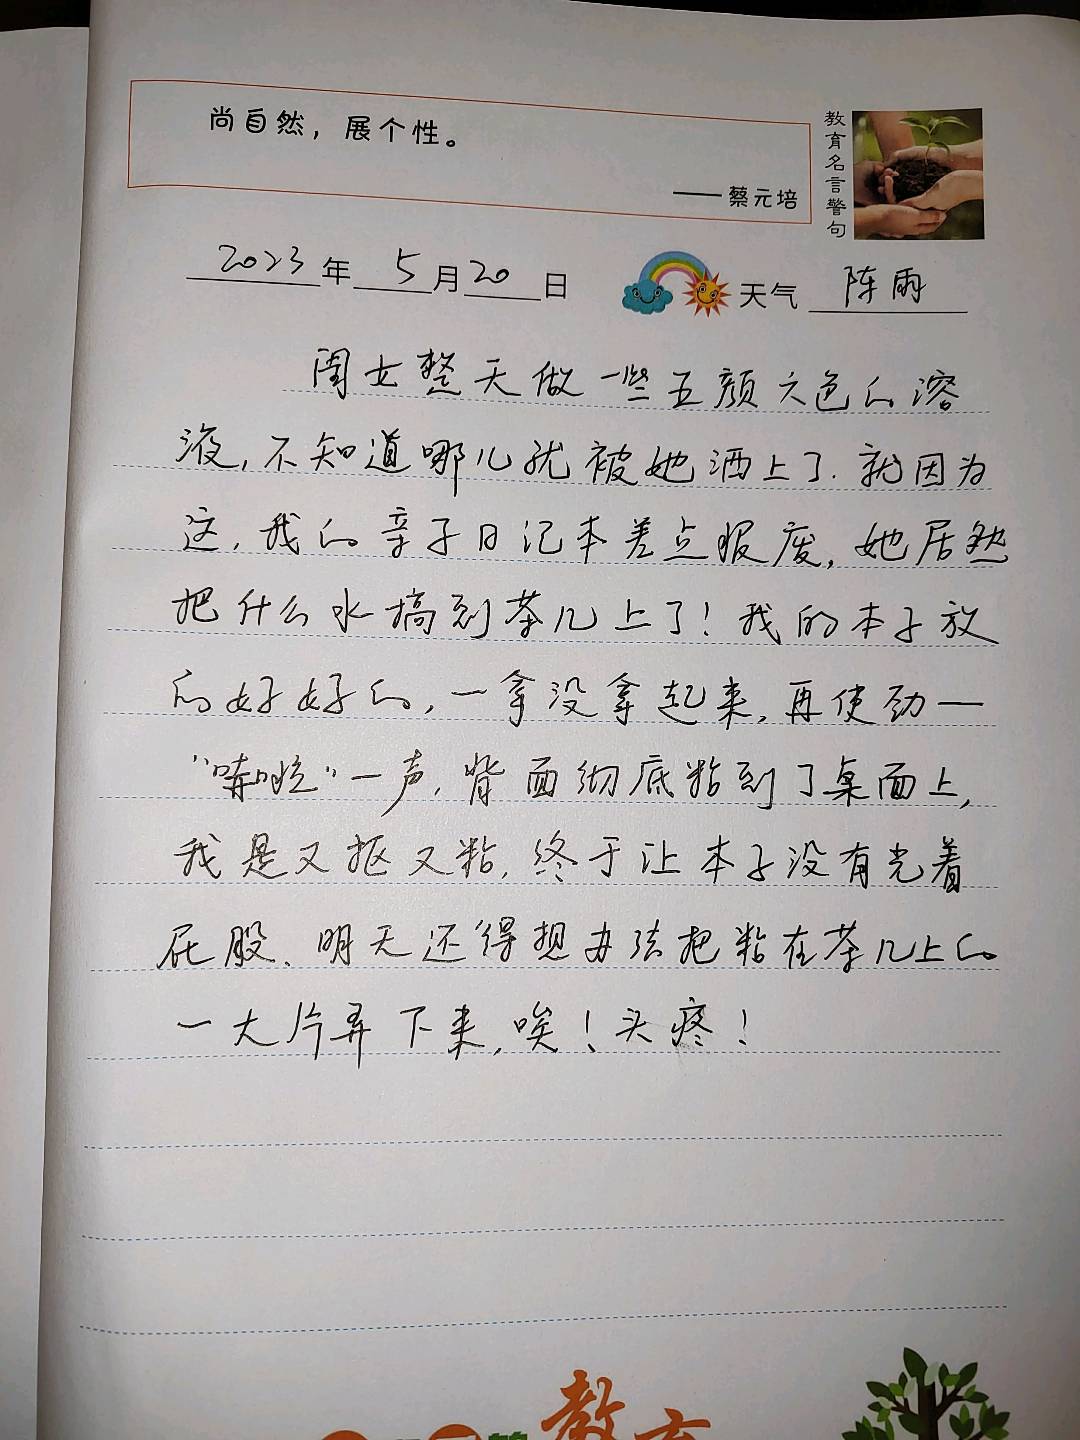 尚自然，展个性。
——蔡元培
教育名言警句
2023年 5月20日 天气 阵雨
闺女整天做一些五颜六色的溶
液，不知道哪儿就被她洒上了．就因为
这，我的亲子日记本差点报废，她居然
把什么水搞到茶几上了！我的本子放
的好好的，一拿没拿起来，再使劲一
“哧啦”一声，背面彻底粘到了桌面上，
我是又抠又粘，终于让本子没有光着
屁股、明天还得想办法把粘在茶几上的
一大片弄下来，唉！头疼！
教育